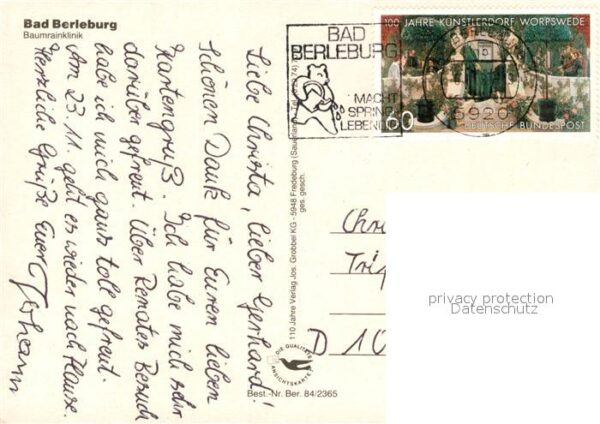 Bad Berleburg
Baumrainklinik
Liebe Christa, lieber Gerhard!
Schönen Dank für Euren lieben
Kartengruß. Ich habe mich sehr
darüber gefreut. Über Renates Besuch
habe ich mich ganz toll gefreut.
Am 23.11. geht es wieder nach Hause.
Herzliche Grüße Euer Johann
BAD
BERLEBURG
MACHT
SPRINZ
LEBEN
5920
100 JAHRE KÜNSTLERDORF WORPSWEDE
60
DEUTSCHE BUNDESPOST
110 Jahre Verlag Jos. Grobbel KG - 5948 Fredeburg (Sauerland)
ges. gesch.
DIE QUALITÄTS
ANSICHTSKARTE
Best.-Nr. Ber. 84/2365
Chri
D 10
privacy protection
Datenschutz